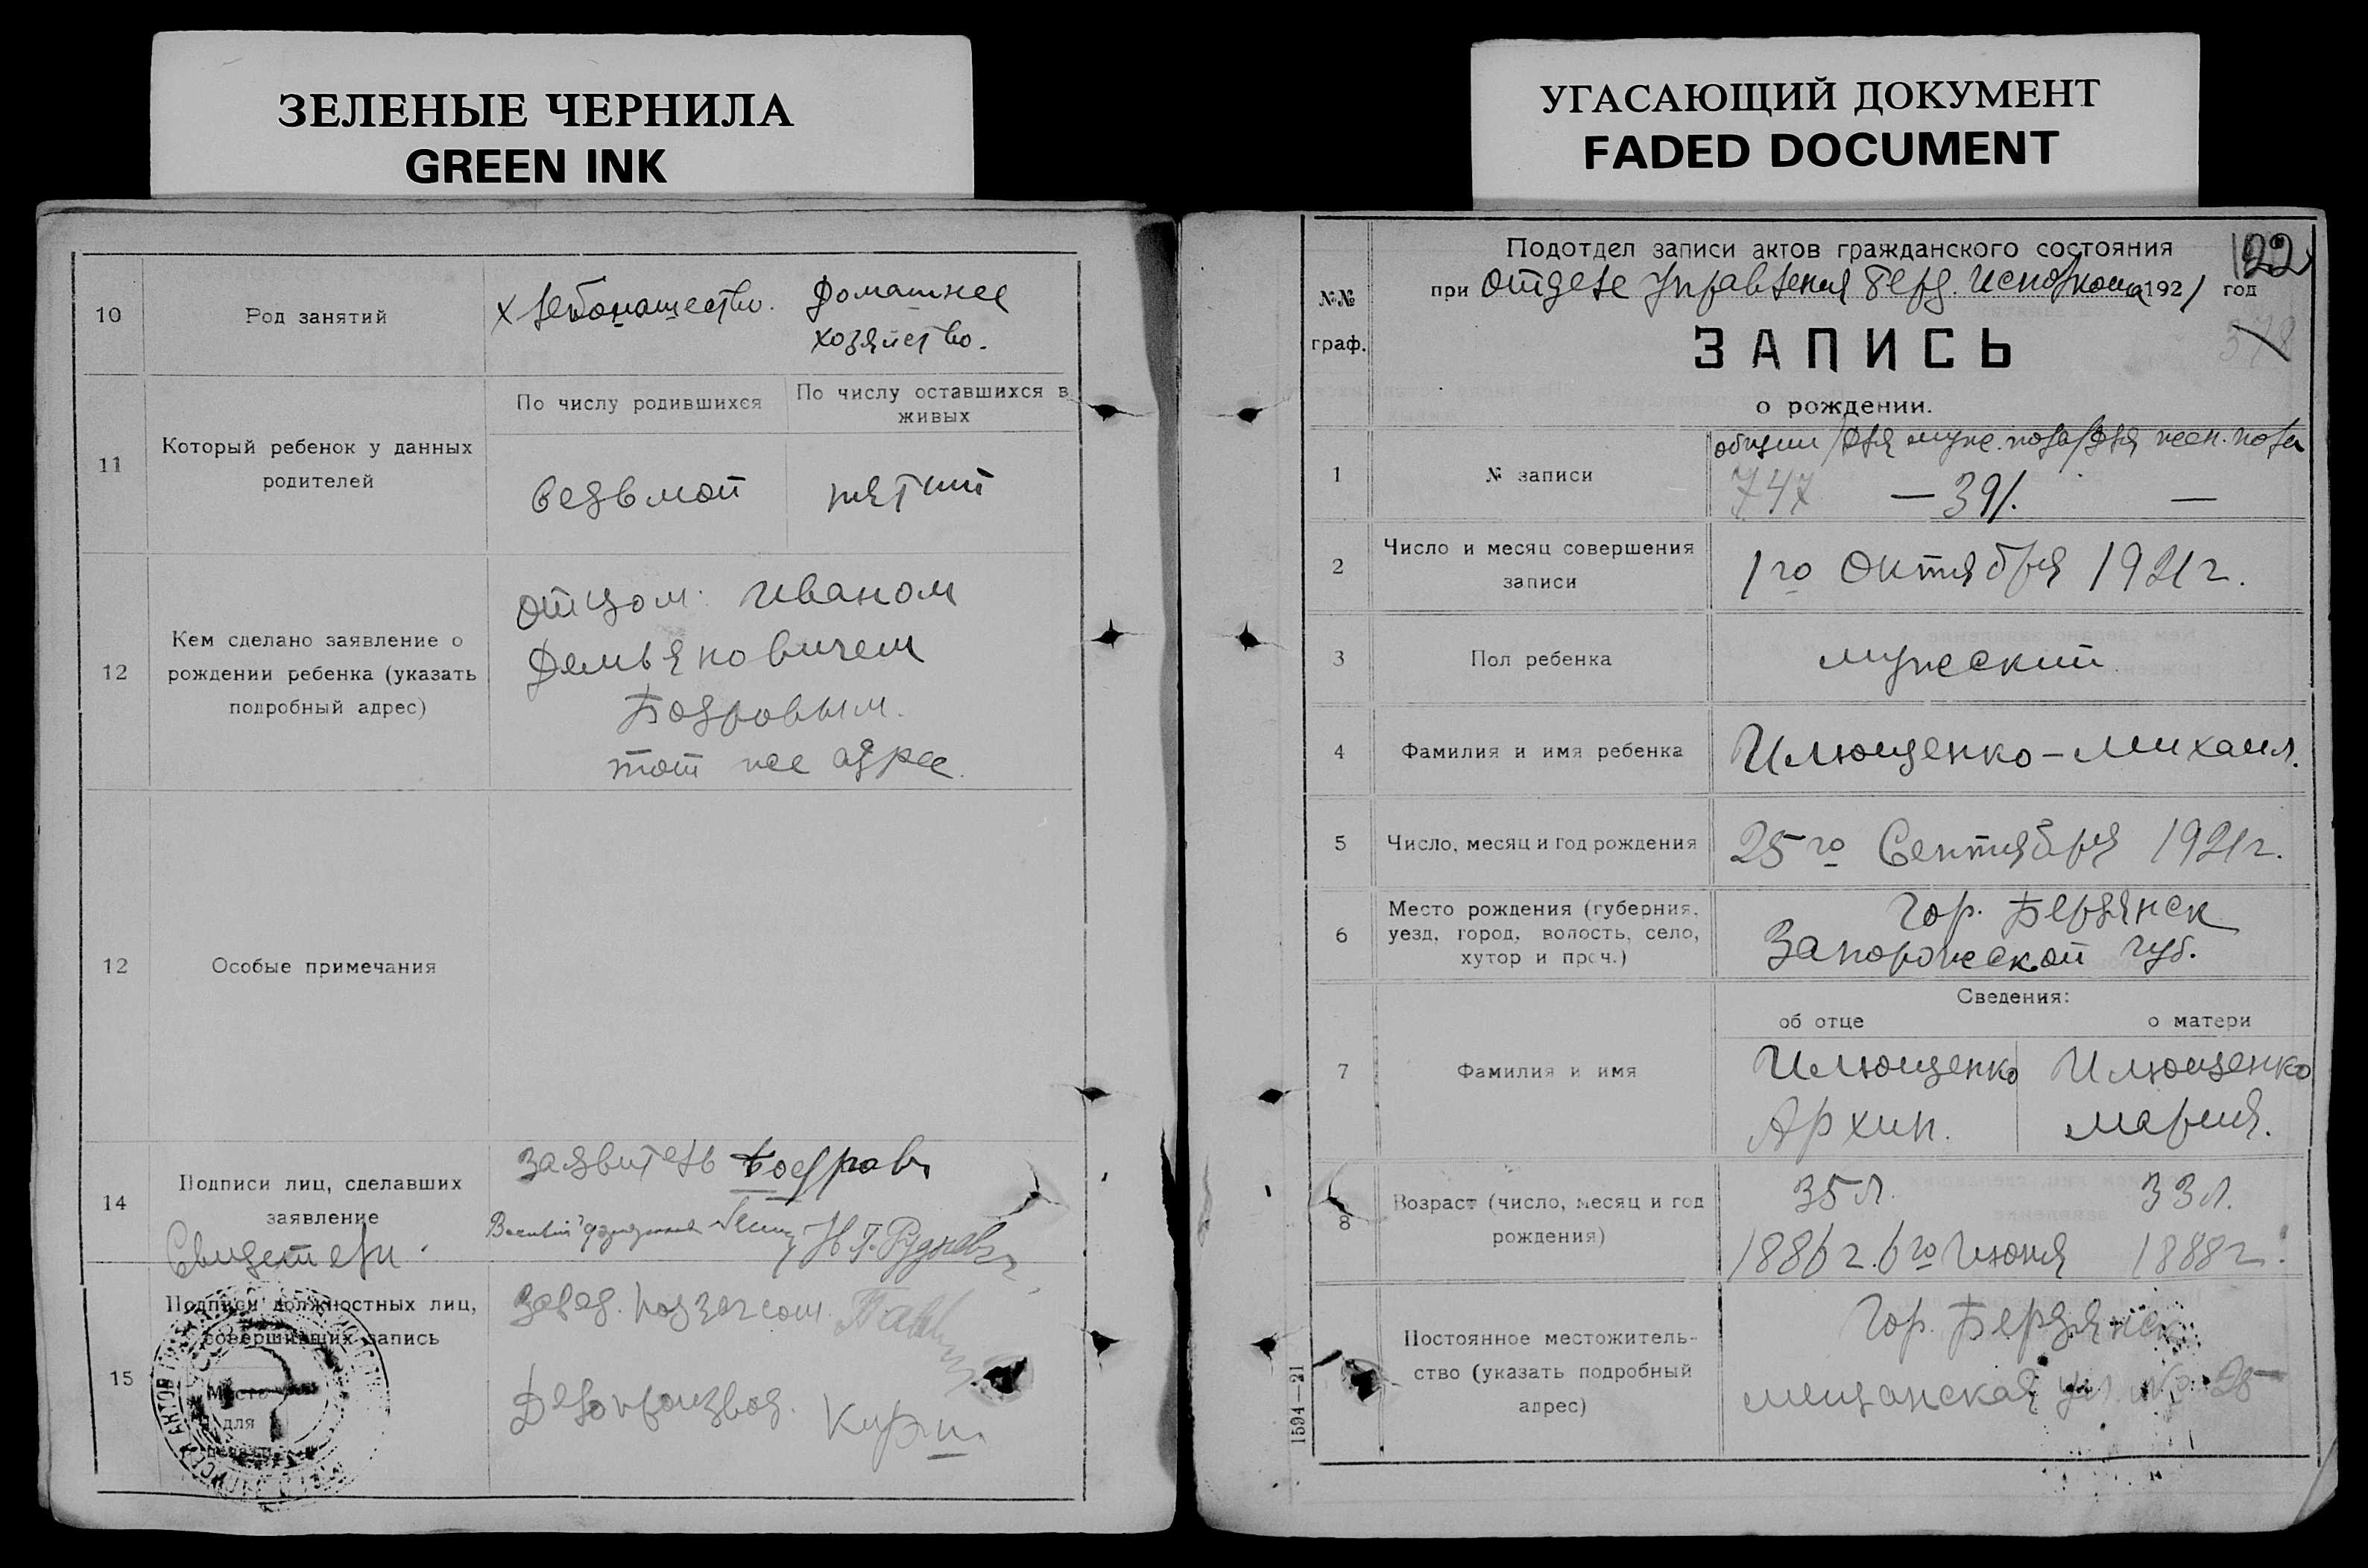 ЗЕЛЕНЫЕ ЧЕРНИЛА
GREEN INK
10
Род занятий
Хлебопашество.
Домашнее
хозяйство.
11
Который ребенок у данных
родителей
По числу родившихся
По числу оставшихся в
живых
ведьмой
пятий
12
Кем сделано заявление о
рождении ребенка (указать
подробный адрес)
отцом Иваном
Демьяновичем
Бодровым.
тот же адрес.
12
Особые примечания
14
Подписи лиц, сделавших
заявление
Свидетели.
Заявитель Бодров
Н. Г. Руднев
15
Подписи должностных лиц,
совершивших запись
Место
для
печати
Завед. подзагсом
Делопроизвод.
УГАСАЮЩИЙ ДОКУМЕНТ
FADED DOCUMENT
№№
граф.
Подотдел записи актов гражданского состояния
122
при отделе Управления Берд. Исполкома 1921 год
378
ЗАПИСЬ
о рождении.
1
№ записи
общий/для муж. пола/для жен. пола
747 — 391. —
2
Число и месяц совершения
записи
1го Октября 1921 г.
3
Пол ребенка
мужеский
4
Фамилия и имя ребенка
Илющенко – Михаил.
5
Число, месяц и год рождения
25го Сентября 1921 г.
6
Место рождения (губерния,
уезд, город, волость, село,
хутор и проч.)
Гор. Бердянск
Запорожеской губ.
Сведения:
об отце
о матери
7
Фамилия и имя
Илющенко
Архип.
Илющенко
Мария.
8
Возраст (число, месяц и год
рождения)
35 л.
33 л.
1886 г. 6го Июня
1888 г.
Постоянное местожитель-
ство (указать подробный
адрес)
Гор. Бердянск
Мещанская ул. № 25
1594—21